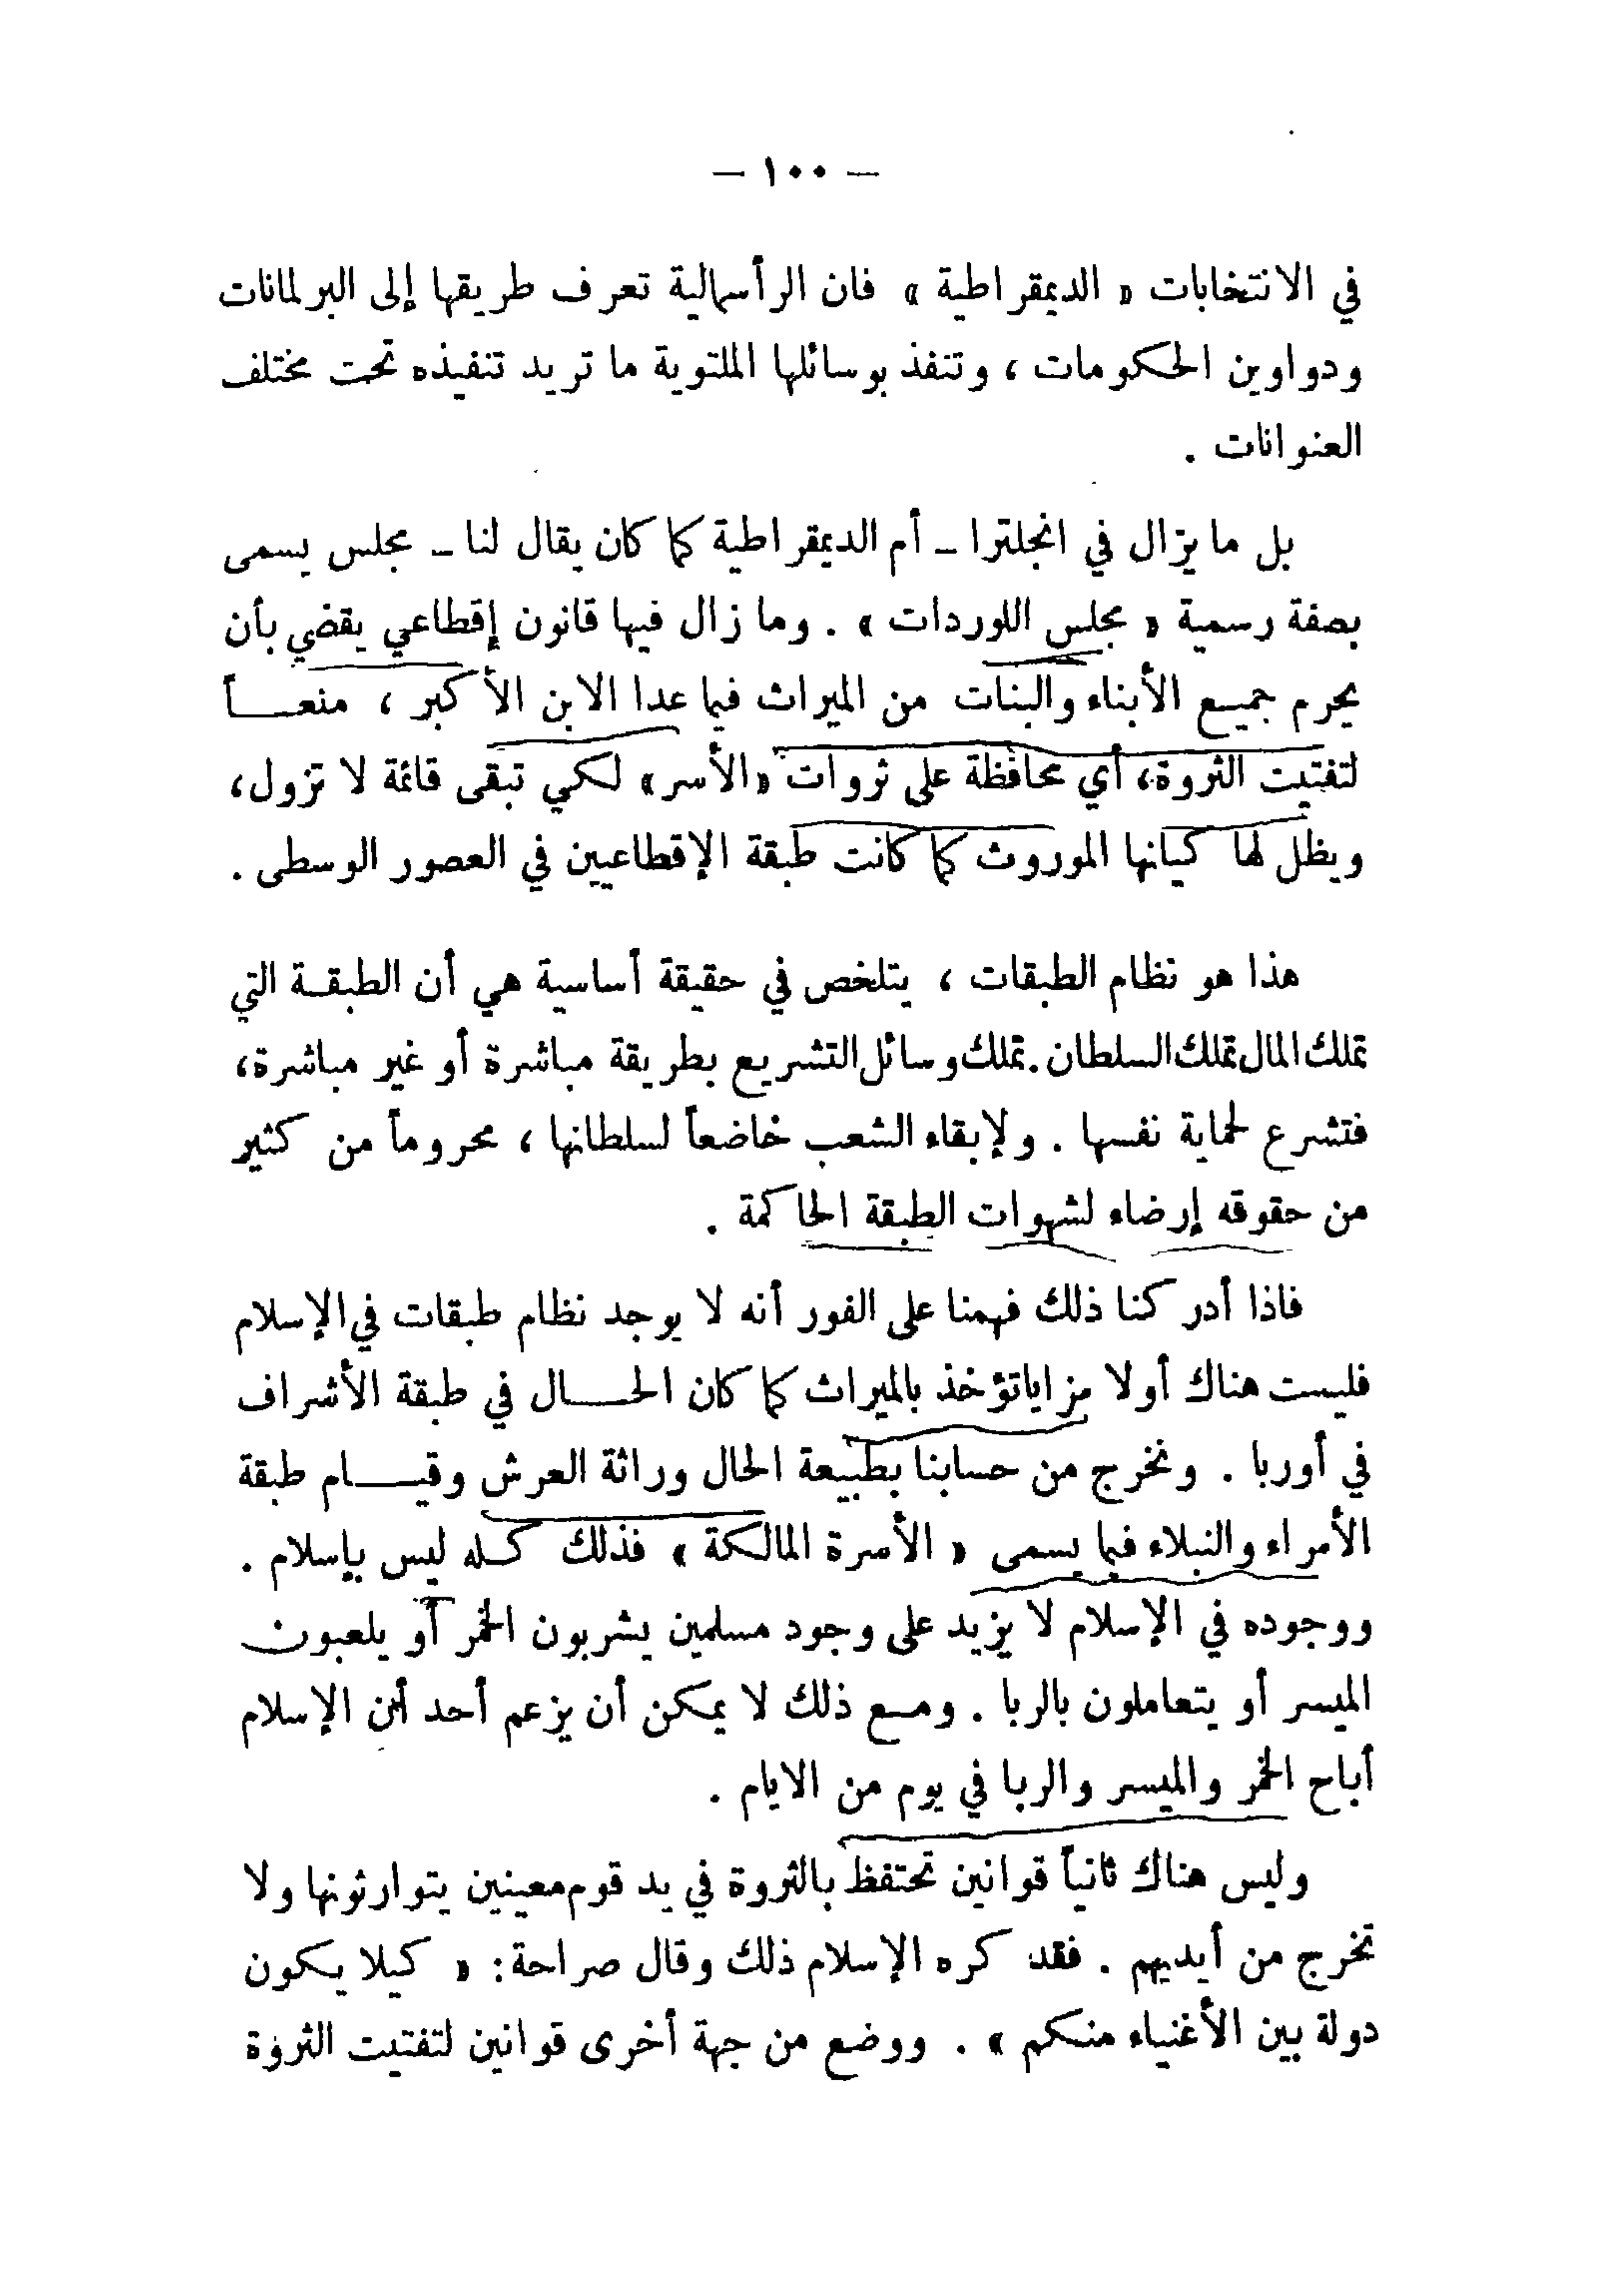 — ١٠٠ —
في الانتخابات « الديمقراطية » فان الرأسمالية تعرف طريقها إلى البرلمانات
ودواوين الحكومات ، وتنفذ بوسائلها الملتوية ما تريد تنفيذه تحت مختلف
العنوانات .
بل ما يزال في انجلترا – أم الديمقراطية كما كان يقال لنا – مجلس يسمى
بصفة رسمية « مجلس اللوردات » . وما زال فيها قانون إقطاعي يقضي بأن
يحرم جميع الأبناء والبنات من الميراث فيما عدا الابن الأكبر ، منعاً
لتفتيت الثروة، أي محافظة على ثروات «الأسر» لكي تبقى قائمة لا تزول،
ويظل لها كيانها الموروث كما كانت طبقة الإقطاعيين في العصور الوسطى .
هذا هو نظام الطبقات ، يتلخص في حقيقة أساسية هي أن الطبقة التي
تملك المال تملك السلطان. تملك وسائل التشريع بطريقة مباشرة أو غير مباشرة،
فتشرع لحماية نفسها . ولإبقاء الشعب خاضعاً لسلطانها ، محروماً من كثير
من حقوقه إرضاء لشهوات الطبقة الحاكمة .
فاذا أدركنا ذلك فهمنا على الفور أنه لا يوجد نظام طبقات في الإسلام
فليست هناك أولا مزايا تؤخذ بالميراث كما كان الحال في طبقة الأشراف
في أوربا . ونخرج من حسابنا بطبيعة الحال وراثة العرش وقيام طبقة
الأمراء والنبلاء فيما يسمى « الأسرة المالكة » فذلك كله ليس بإسلام .
ووجوده في الإسلام لا يزيد على وجود مسلمين يشربون الخمر أو يلعبون
الميسر أو يتعاملون بالربا . ومع ذلك لا يمكن أن يزعم أحد أن الإسلام
أباح الخمر والميسر والربا في يوم من الايام .
وليس هناك ثانياً قوانين تحتفظ بالثروة في يد قوم معينين يتوارثونها ولا
تخرج من أيديهم . فقد كره الإسلام ذلك وقال صراحة: « كيلا يكون
دولة بين الأغنياء منكم » . ووضع من جهة أخرى قوانين لتفتيت الثروة